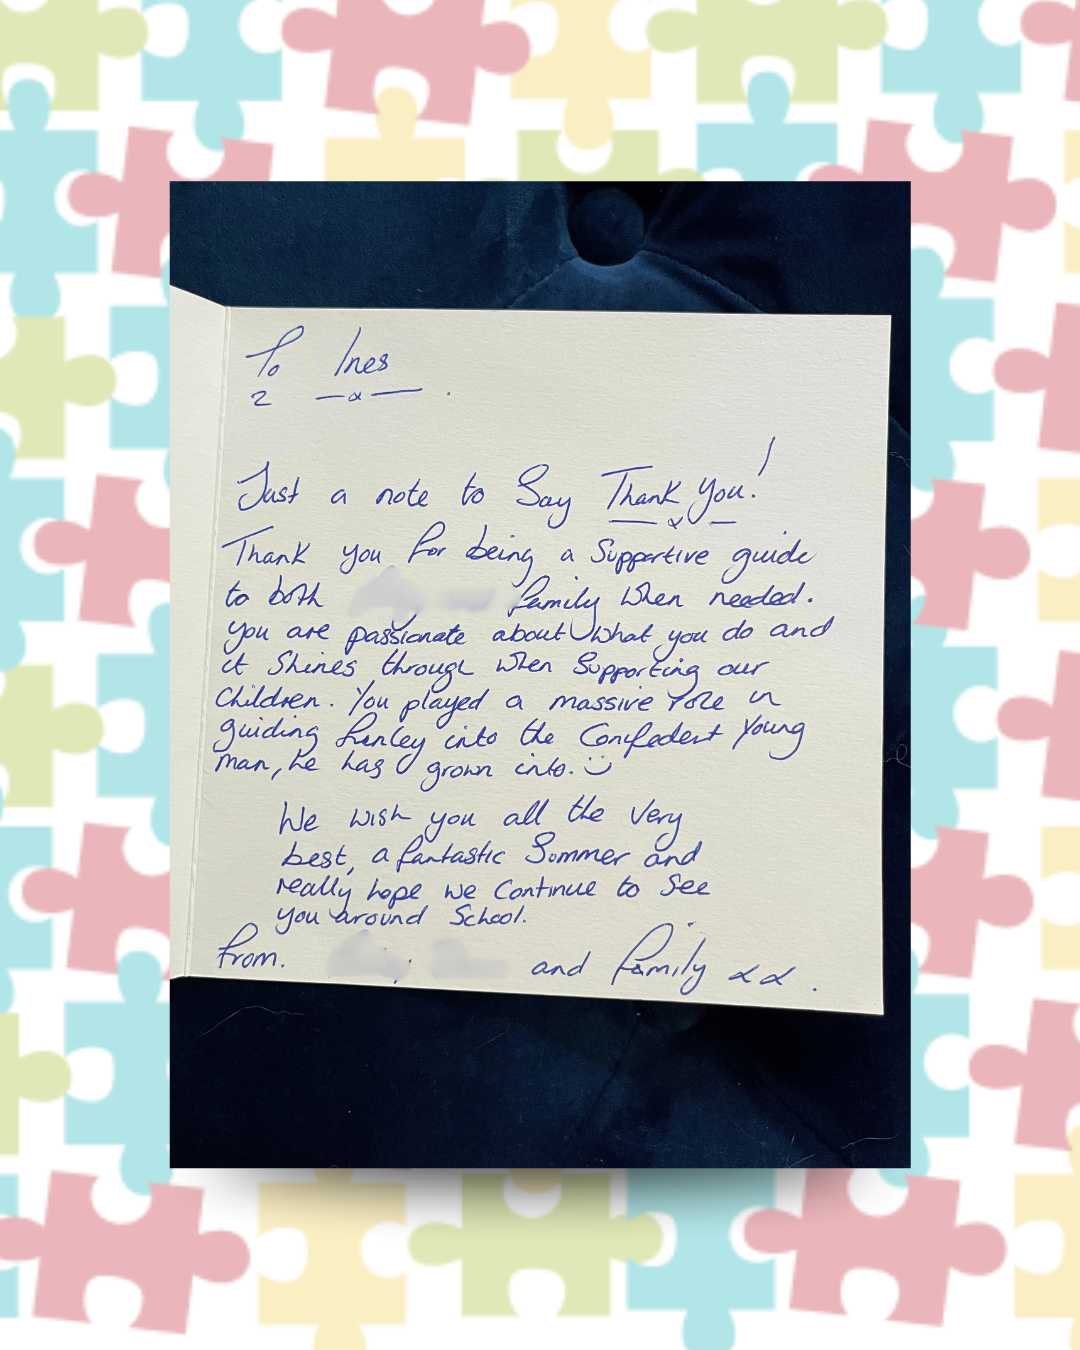 To Ines
Just a note to Say Thank you!
Thank you for being a Supportive guide
to both family when needed.
you are passionate about what you do and
it Shines through when Supporting our
Children. You played a massive role in
guiding into the Confedent Young
man, he has grown into.
We wish you all the Very
best, a fantastic Summer and
really hope we Continue to See
you around School.
from. and family xx.